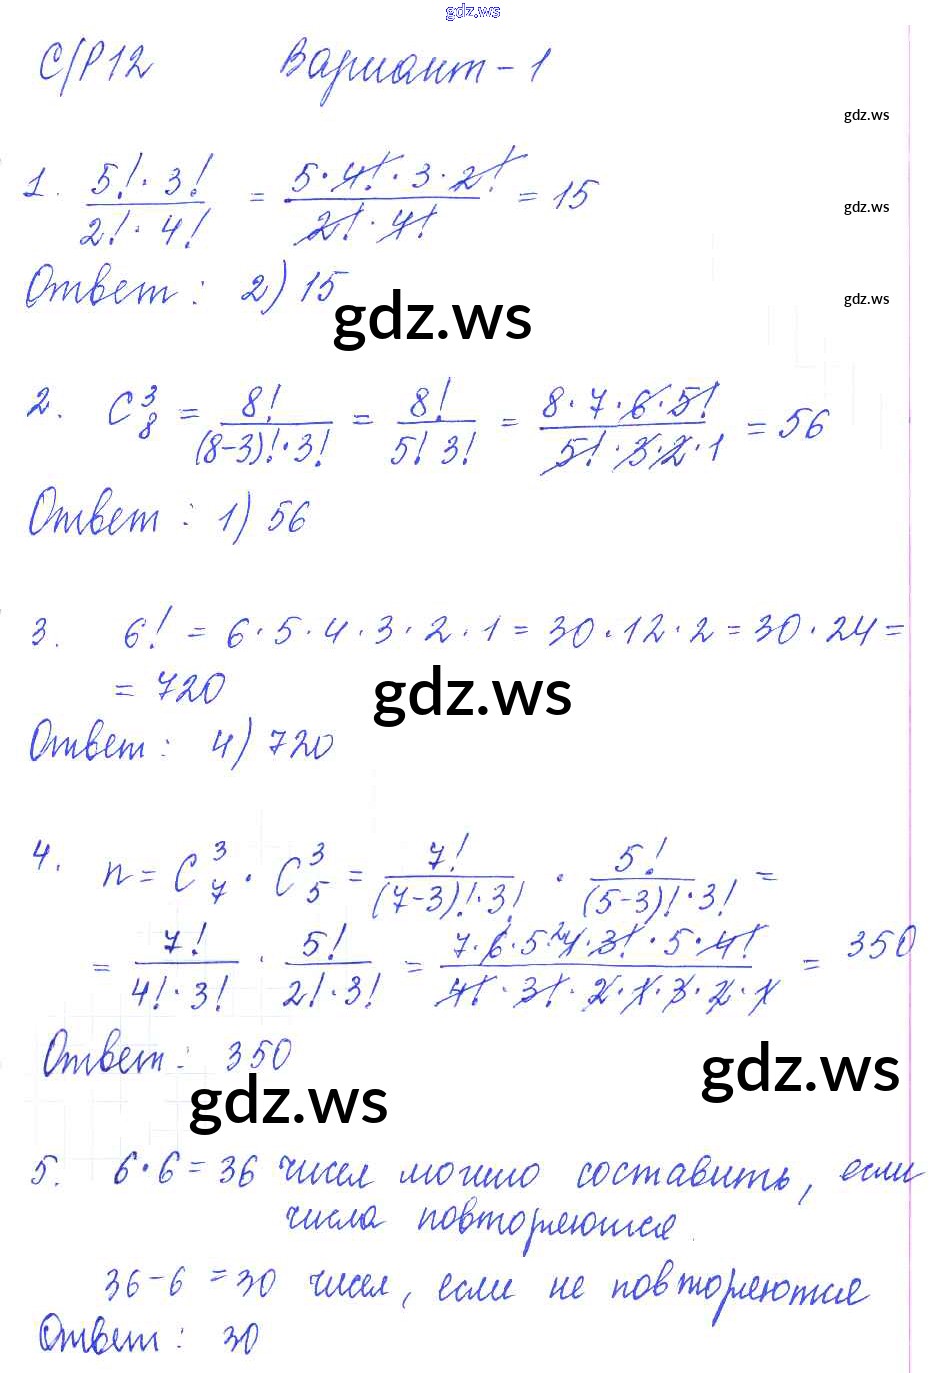 gdz.ws
С/Р 12 Вариант - 1
gdz.ws
1. 5! · 3! / 2! · 4! = 5 · 4! · 3 · 2! / 2! · 4! = 15
gdz.ws
Ответ : 2) 15
gdz.ws
gdz.ws
2. C³₈ = 8! / (8-3)! · 3! = 8! / 5! 3! = 8 · 7 · 6 · 5! / 5! · 3 · 2 · 1 = 56
Ответ : 1) 56
3. 6! = 6 · 5 · 4 · 3 · 2 · 1 = 30 · 12 · 2 = 30 · 24 =
= 720
gdz.ws
Ответ : 4) 720
4. n = C³₇ · C³₅ = 7! / (7-3)! · 3! · 5! / (5-3)! · 3! =
= 7! / 4! · 3! · 5! / 2! · 3! = 7 · 6 · 5 · 4 · 3! · 5 · 4! / 4! · 3! · 2 · 1 · 3 · 2 · 1 = 350
Ответ : 350
gdz.ws
gdz.ws
5. 6 · 6 = 36 чисел можно составить, если
числа повторяются.
36 - 6 = 30 чисел, если не повторяются
Ответ : 30